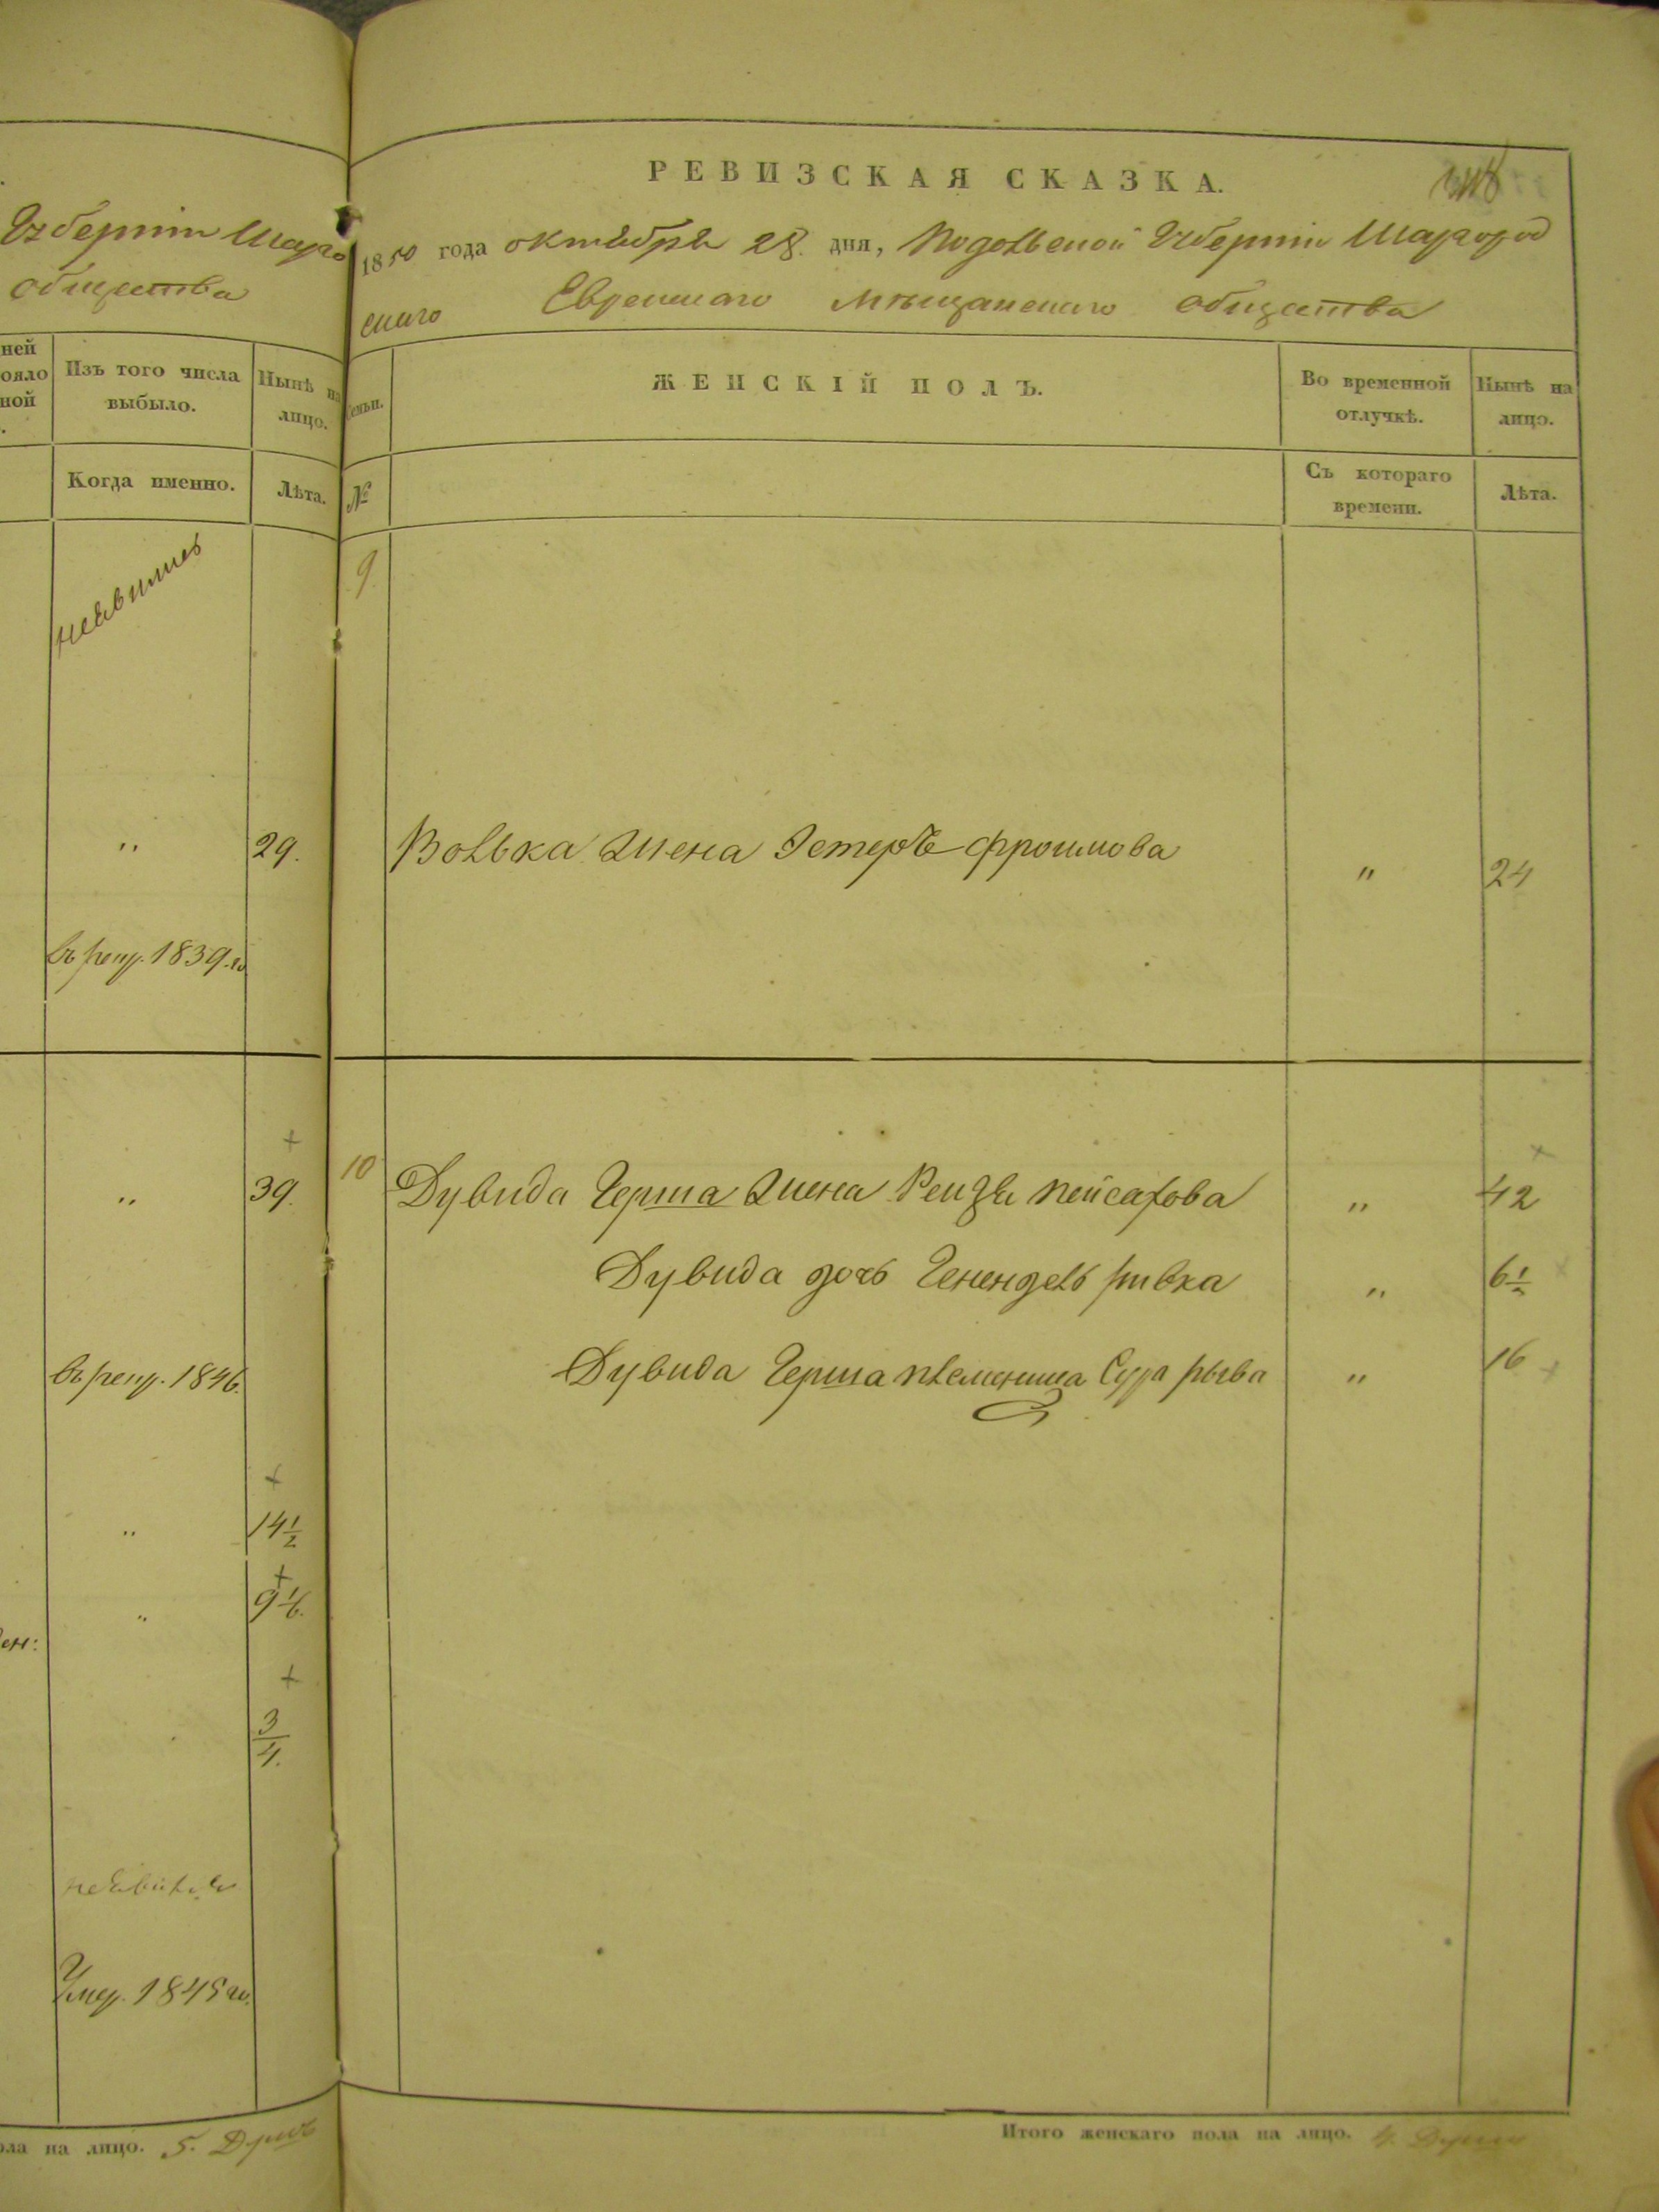 Губерніи Шарго
общества
ней
ояло
ной
Изъ того числа
выбыло.
Нынѣ на
лицо.
Когда именно.
Лѣта.
неявились
„ 29.
въ рекр. 1839. го
„ 39.
въ рекр. 1846.
„ 14 1/2
„ 9 1/6.
ен:
3/4.
Умер. 1845 го.
ола на лицо. 5. Душъ
РЕВИЗСКАЯ СКАЗКА.
1850 года октября 28. дня, Подольской Губерніи Шаргород
скаго Еврейскаго мѣщанскаго общества
Семьи.
ЖЕНСКІЙ ПОЛЪ.
Во временной
отлучкѣ.
Нынѣ на
лицо.
№
Съ котораго
времени.
Лѣта.
9.
Волька жена Эстеръ Фроимова „ 24
10 Дувида Герша жена Рейзя Пейсахова „ 42
Дувида дочь Генендель Ривка „ 6 1/2
Дувида Герша племеница Сура Рыва „ 16
Итого женскаго пола на лицо. 4. Души